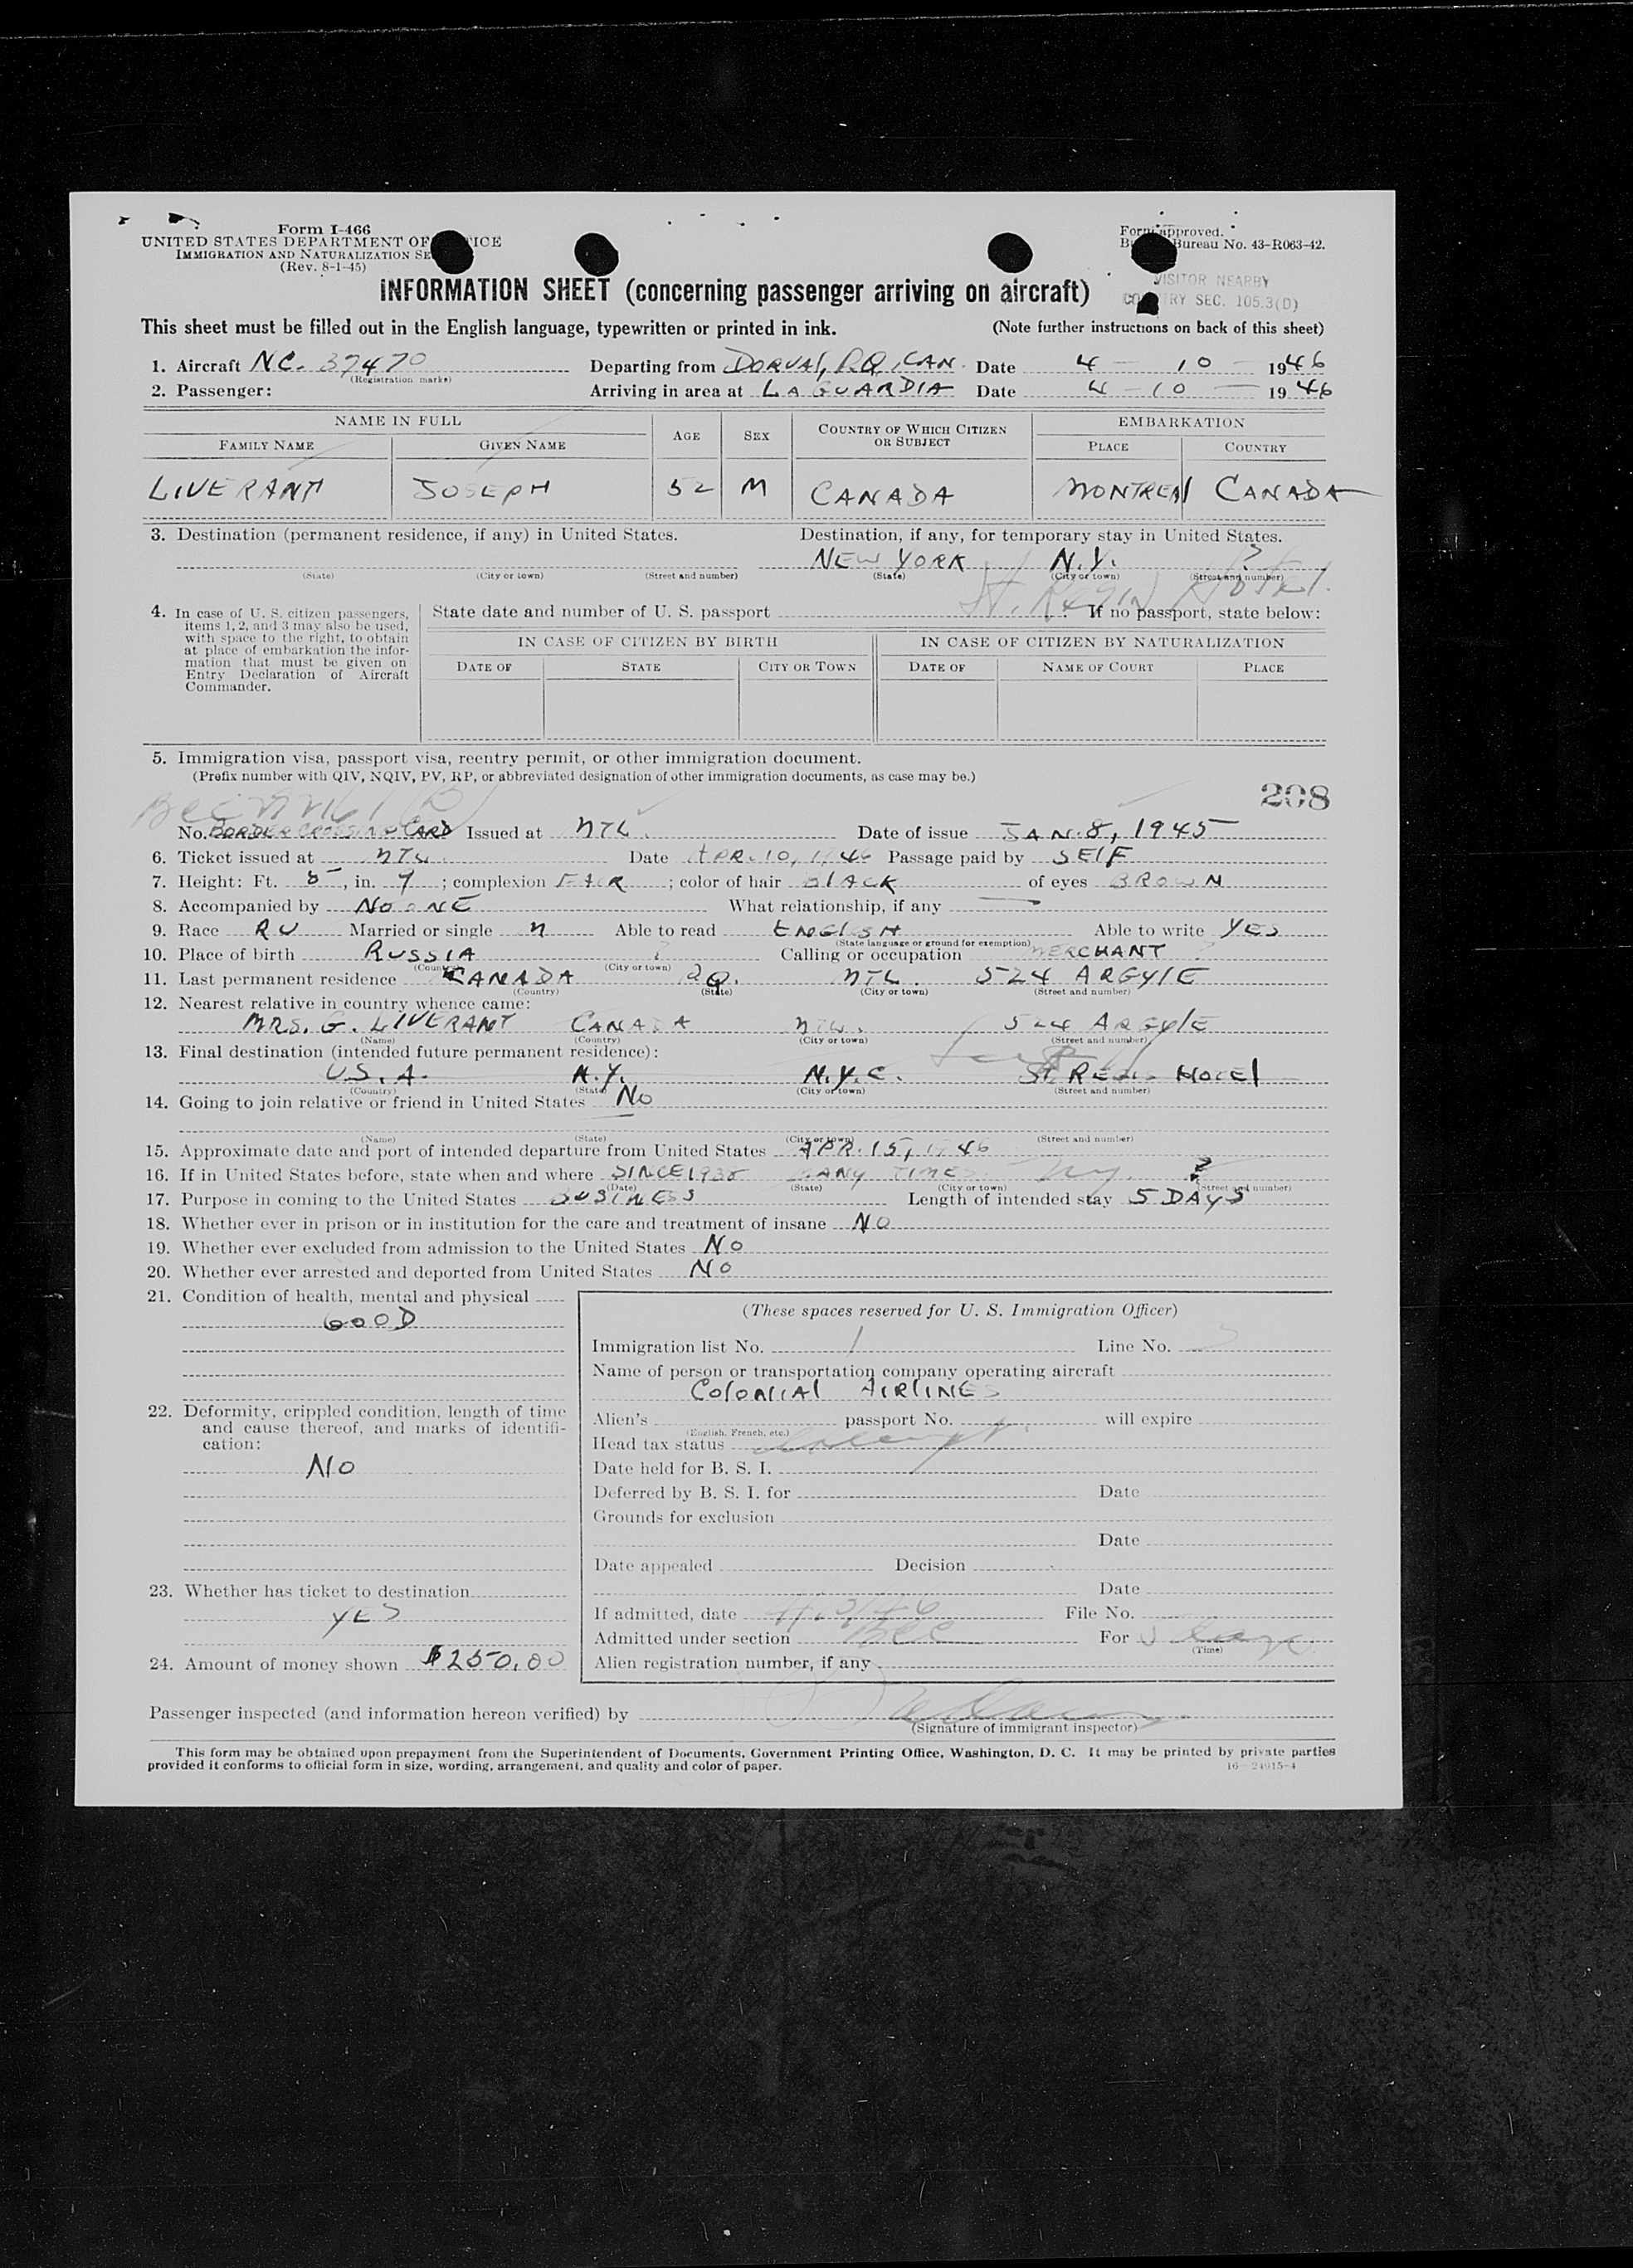 Form I-466
UNITED STATES DEPARTMENT OF
IMMIGRATION AND NATURALIZATION
(Rev. 8-1-45)
Form approved.
Bureau No. 43-R063-42.
VISITOR NEARBY
SEC. 105.3(D)
INFORMATION SHEET (concerning passenger arriving on aircraft)
This sheet must be filled out in the English language, typewritten or printed in ink. (Note further instructions on back of this sheet)
1. Aircraft NC. 37470 Departing from DORVAL, P.Q., CAN. Date 4 - 10 - 1946
(Registration marks)
2. Passenger: Arriving in area at LAGUARDIA Date 4 - 10 - 1946
NAME IN FULL AGE SEX COUNTRY OF WHICH CITIZEN OR SUBJECT EMBARKATION
FAMILY NAME GIVEN NAME PLACE COUNTRY
LIVERANT JOSEPH 52 M CANADA MONTREAL CANADA
3. Destination (permanent residence, if any) in United States. Destination, if any, for temporary stay in United States.
NEW YORK N.Y. ?
(State) (City or town) (Street and number) (State) (City or town) (Street and number)
St. Regis Hotel.
4. In case of U. S. citizen passengers, items 1, 2, and 3 may also be used, with space to the right, to obtain at place of embarkation the information that must be given on Entry Declaration of Aircraft Commander.
State date and number of U. S. passport If no passport, state below:
IN CASE OF CITIZEN BY BIRTH IN CASE OF CITIZEN BY NATURALIZATION
DATE OF STATE CITY OR TOWN DATE OF NAME OF COURT PLACE
5. Immigration visa, passport visa, reentry permit, or other immigration document.
(Prefix number with QIV, NQIV, PV, RP, or abbreviated designation of other immigration documents, as case may be.)
208
No. BORDER CROSSING CARD Issued at MTL. Date of issue JAN. 8, 1945
6. Ticket issued at MTL. Date APR. 10, 1946 Passage paid by SELF
7. Height: Ft. 5, in. 7; complexion FAIR; color of hair BLACK of eyes BROWN
8. Accompanied by NO ONE What relationship, if any —
9. Race RU Married or single M Able to read ENGLISH Able to write YES
(State language or ground for exemption)
10. Place of birth RUSSIA ? Calling or occupation MERCHANT
(Country) (City or town)
11. Last permanent residence CANADA P.Q. MTL. 524 ARGYLE
(Country) (State) (City or town) (Street and number)
12. Nearest relative in country whence came:
MRS. G. LIVERANT CANADA MTL. 524 ARGYLE
(Name) (Country) (City or town) (Street and number)
13. Final destination (intended future permanent residence):
U.S.A. N.Y. N.Y.C. St. REGIS HOTEL
(Country) (State) (City or town) (Street and number)
14. Going to join relative or friend in United States No
(Name) (State) (City or town) (Street and number)
15. Approximate date and port of intended departure from United States APR. 15, 1946
16. If in United States before, state when and where SINCE 1938 MANY TIMES ny. ?
(Date) (State) (City or town) (Street and number)
17. Purpose in coming to the United States BUSINESS Length of intended stay 5 DAYS
18. Whether ever in prison or in institution for the care and treatment of insane NO
19. Whether ever excluded from admission to the United States No
20. Whether ever arrested and deported from United States NO
21. Condition of health, mental and physical
GOOD
22. Deformity, crippled condition, length of time and cause thereof, and marks of identification:
NO
23. Whether has ticket to destination
YES
24. Amount of money shown $250.00
(These spaces reserved for U. S. Immigration Officer)
Immigration list No. 1 Line No. 3
Name of person or transportation company operating aircraft
COLONIAL AIRLINES
Alien's passport No. will expire
(English, French, etc.)
Head tax status
Date held for B. S. I.
Deferred by B. S. I. for Date
Grounds for exclusion
Date
Date appealed Decision
Date
If admitted, date File No.
Admitted under section For
(Time)
Alien registration number, if any
Passenger inspected (and information hereon verified) by
(Signature of immigrant inspector)
This form may be obtained upon prepayment from the Superintendent of Documents, Government Printing Office, Washington, D. C. It may be printed by private parties
provided it conforms to official form in size, wording, arrangement, and quality and color of paper. 16—24915-4